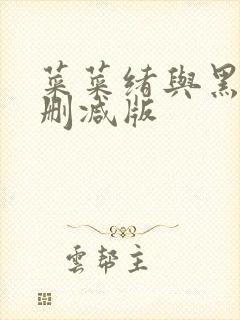 菜菜绪與黑
删减版
雲帮主